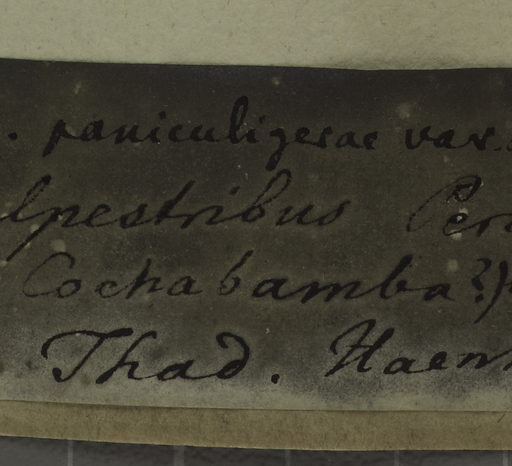 . paniculigerae var.
lpestribus Per
Cochabamba?)
Thad. Haen